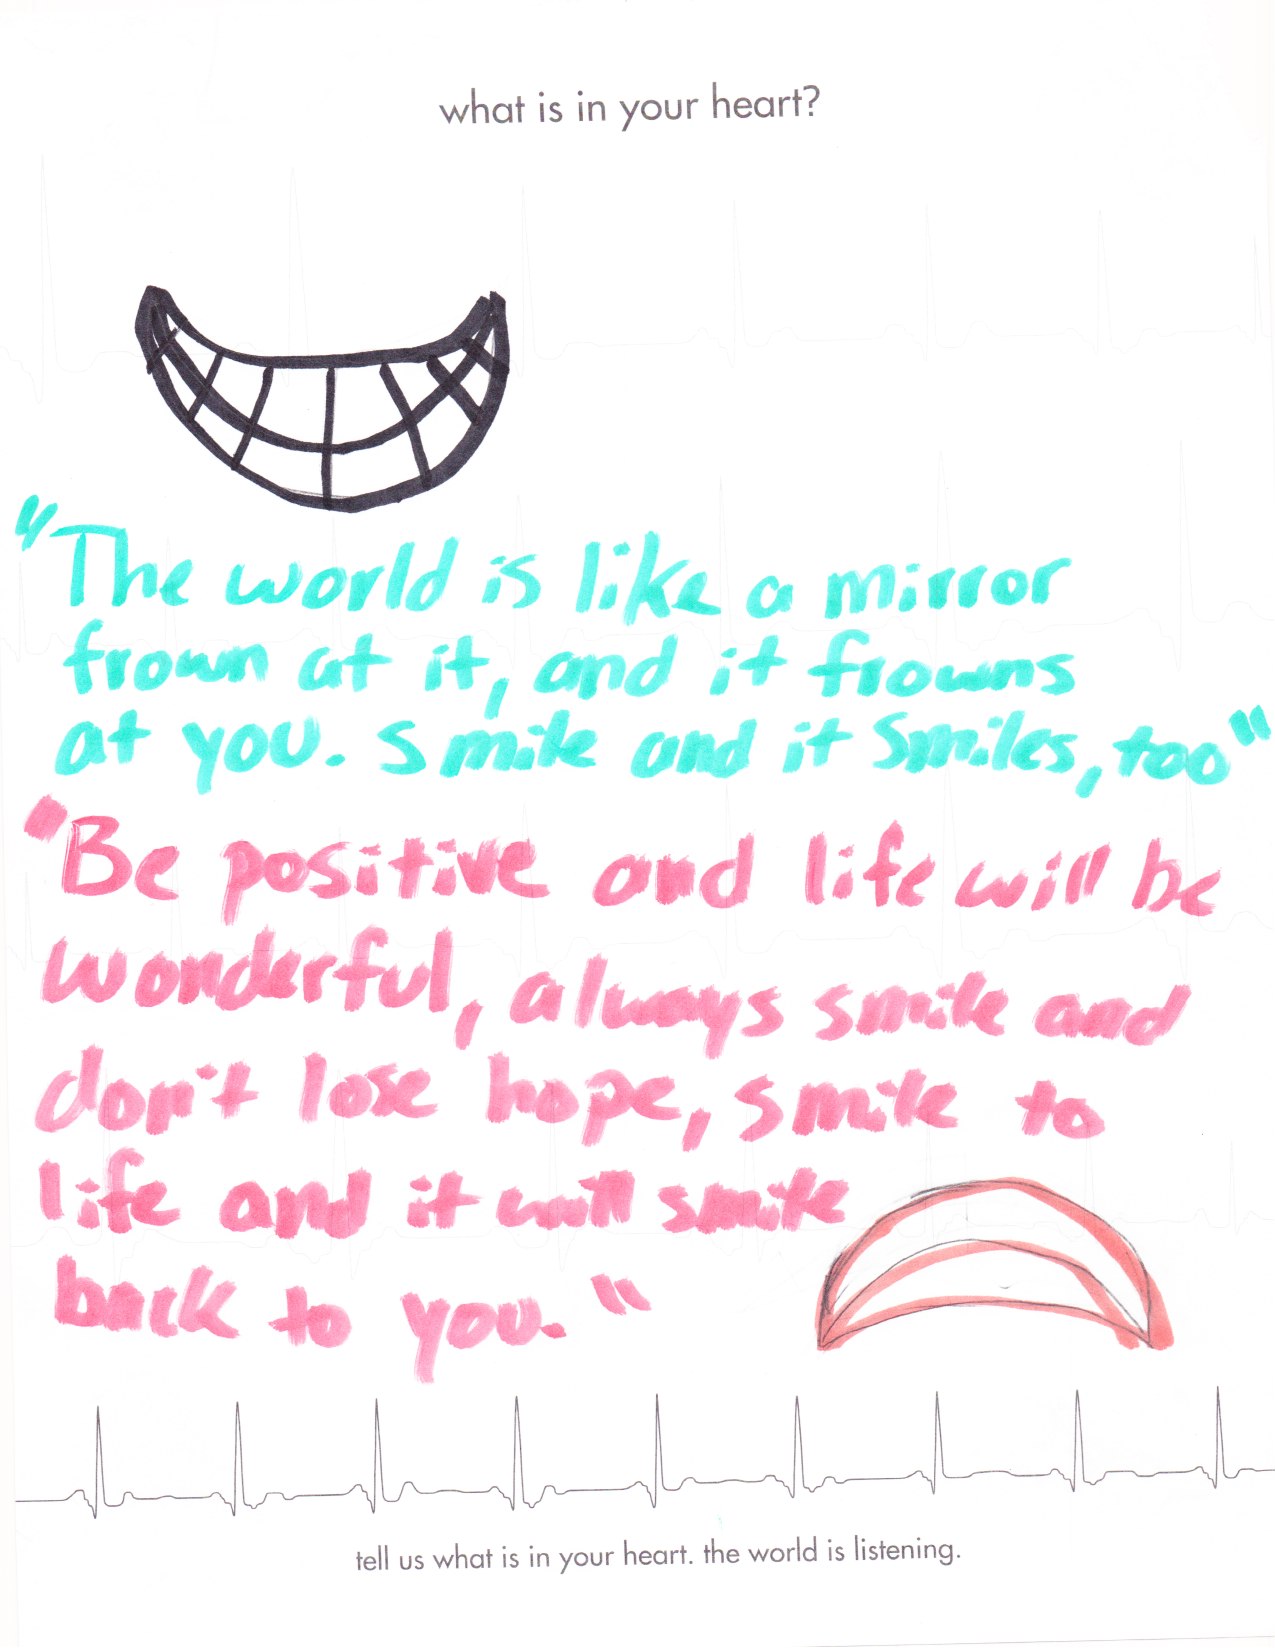 what is in your heart?
"The world is like a mirror
frown at it, and it frowns
at you. Smile and it Smiles, too"
"Be positive and life will be
wonderful, always smile and
don't lose hope, smile to
life and it will smile
back to you."
tell us what is in your heart. the world is listening.